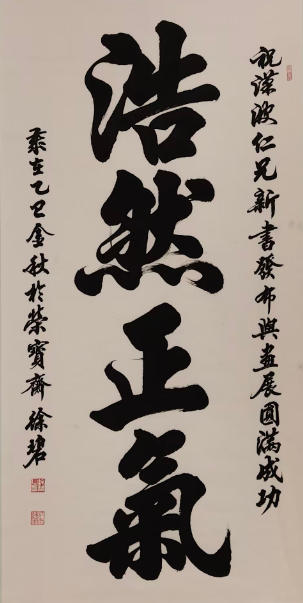 祝波仁兄新書發布與畫展圓滿成功
浩然正氣
歲在乙巳金秋於榮寶齋徐